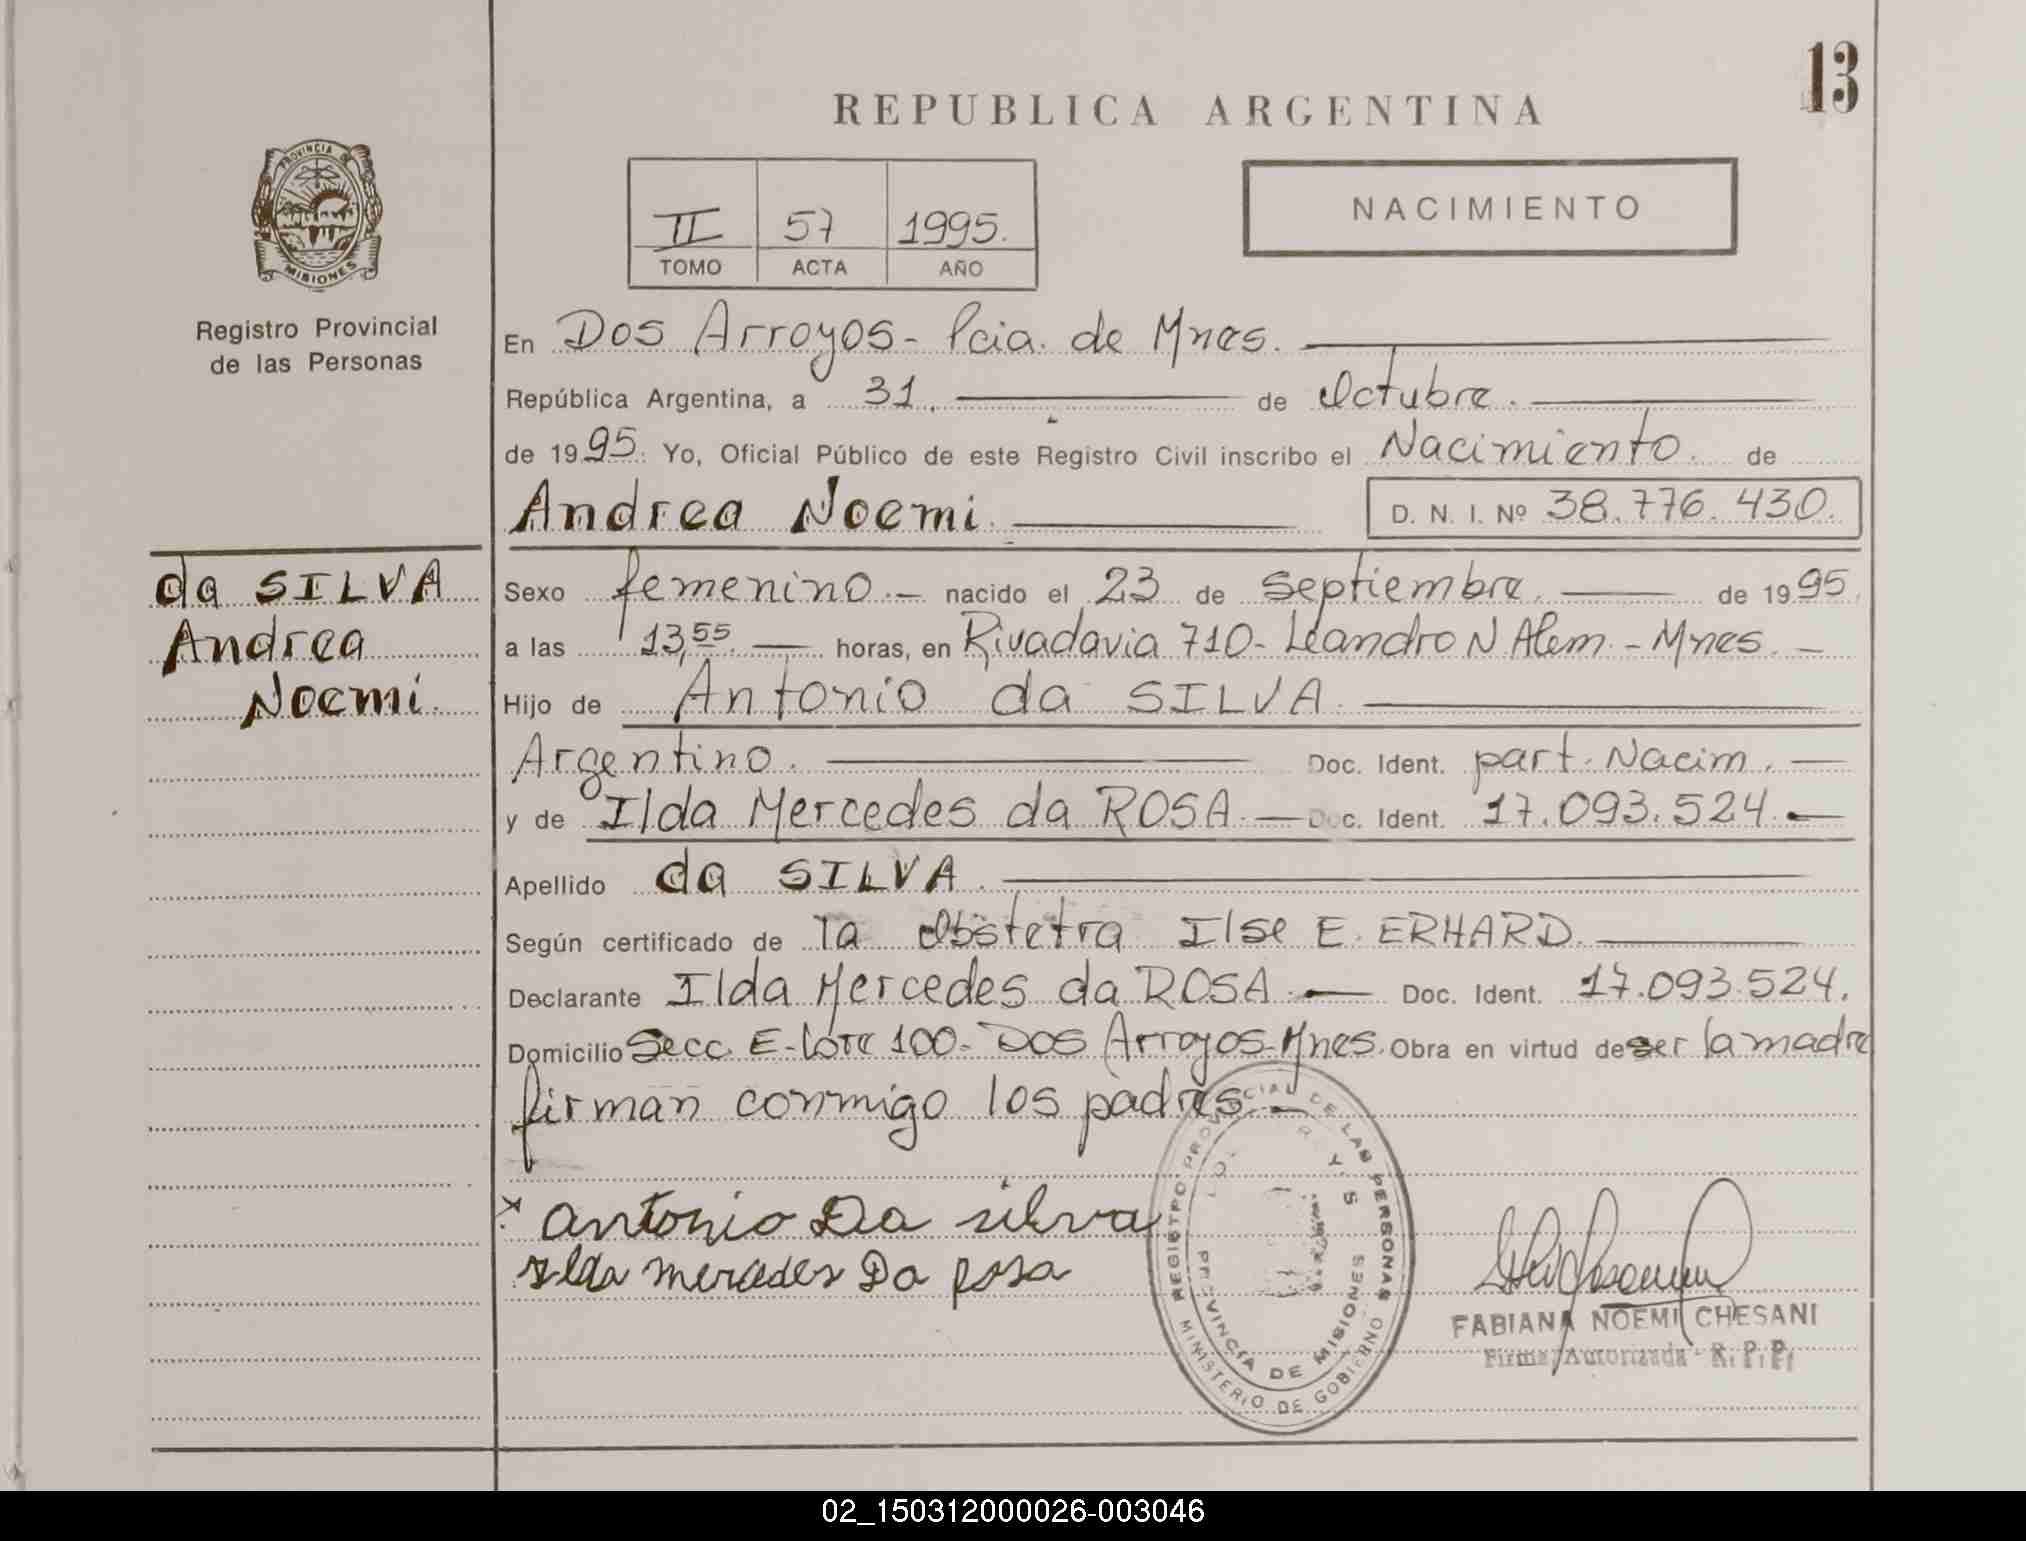 13
REPUBLICA ARGENTINA
PROVINCIA DE
MISIONES
Registro Provincial
de las Personas
II 57 1995.
TOMO ACTA AÑO
NACIMIENTO
En Dos Arroyos - Pcia. de Mnes.
República Argentina, a 31. de Octubre.
de 1995. Yo, Oficial Público de este Registro Civil inscribo el Nacimiento. de
Andrea Noemi. D. N. I. Nº 38.776.430.
da SILVA
Andrea
Noemi.
Sexo femenino. - nacido el 23 de Septiembre. de 1995
a las 13,55 horas, en Rivadavia 710 - Leandro N Alem. - Mnes. -
Hijo de Antonio da SILVA.
Argentino. Doc. Ident. part. Nacim.
y de Ilda Mercedes da ROSA. Doc. Ident. 17.093.524.
Apellido da SILVA.
Según certificado de la Obstetra Ilse E. ERHARD.
Declarante Ilda Mercedes da ROSA. Doc. Ident. 17.093.524.
Domicilio Secc. E - lote 100 - Dos Arroyos - Mnes. Obra en virtud de ser la madre
firman conmigo los padres. -
x Antonio Da silva
Ilda mercedes Da Rosa
REGISTRO PROVINCIAL DE LAS PERSONAS
MINISTERIO DE GOBIERNO
PROVINCIA DE MISIONES
FABIANA NOEMI CHESANI
Firma Autorizada - R. P. P.
02_150312000026-003046